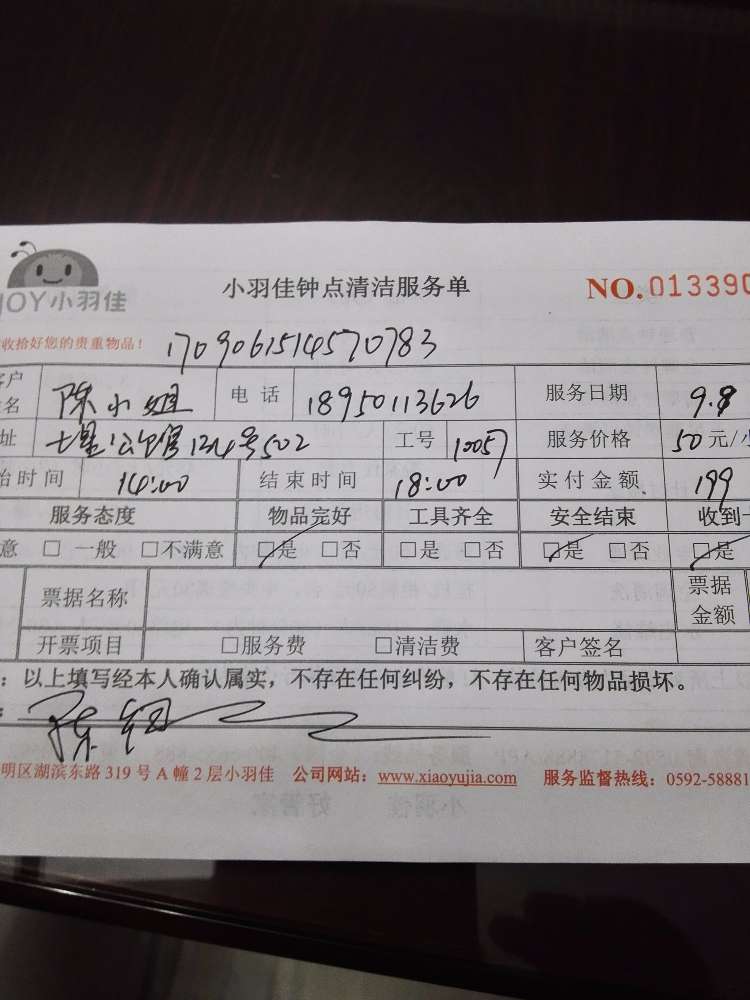 JOY小羽佳
小羽佳钟点清洁服务单
NO.013390
收拾好您的贵重物品！ 1709061514570783
客户 陈小姐 电话 18950113626 服务日期 9.8
名
址 七星公馆134号502 工号 10057 服务价格 50元/小
始时间 14:00 结束时间 18:00 实付金额 199
服务态度 物品完好 工具齐全 安全结束 收到
意 □ 一般 □不满意 □是 □否 □是 □否 □是 □否 □是
票据名称 票据
金额
开票项目 □服务费 □清洁费 客户签名
：以上填写经本人确认属实，不存在任何纠纷，不存在任何物品损坏。
陈
明区湖滨东路 319 号 A 幢 2 层小羽佳 公司网站：www.xiaoyujia.com 服务监督热线：0592-58881